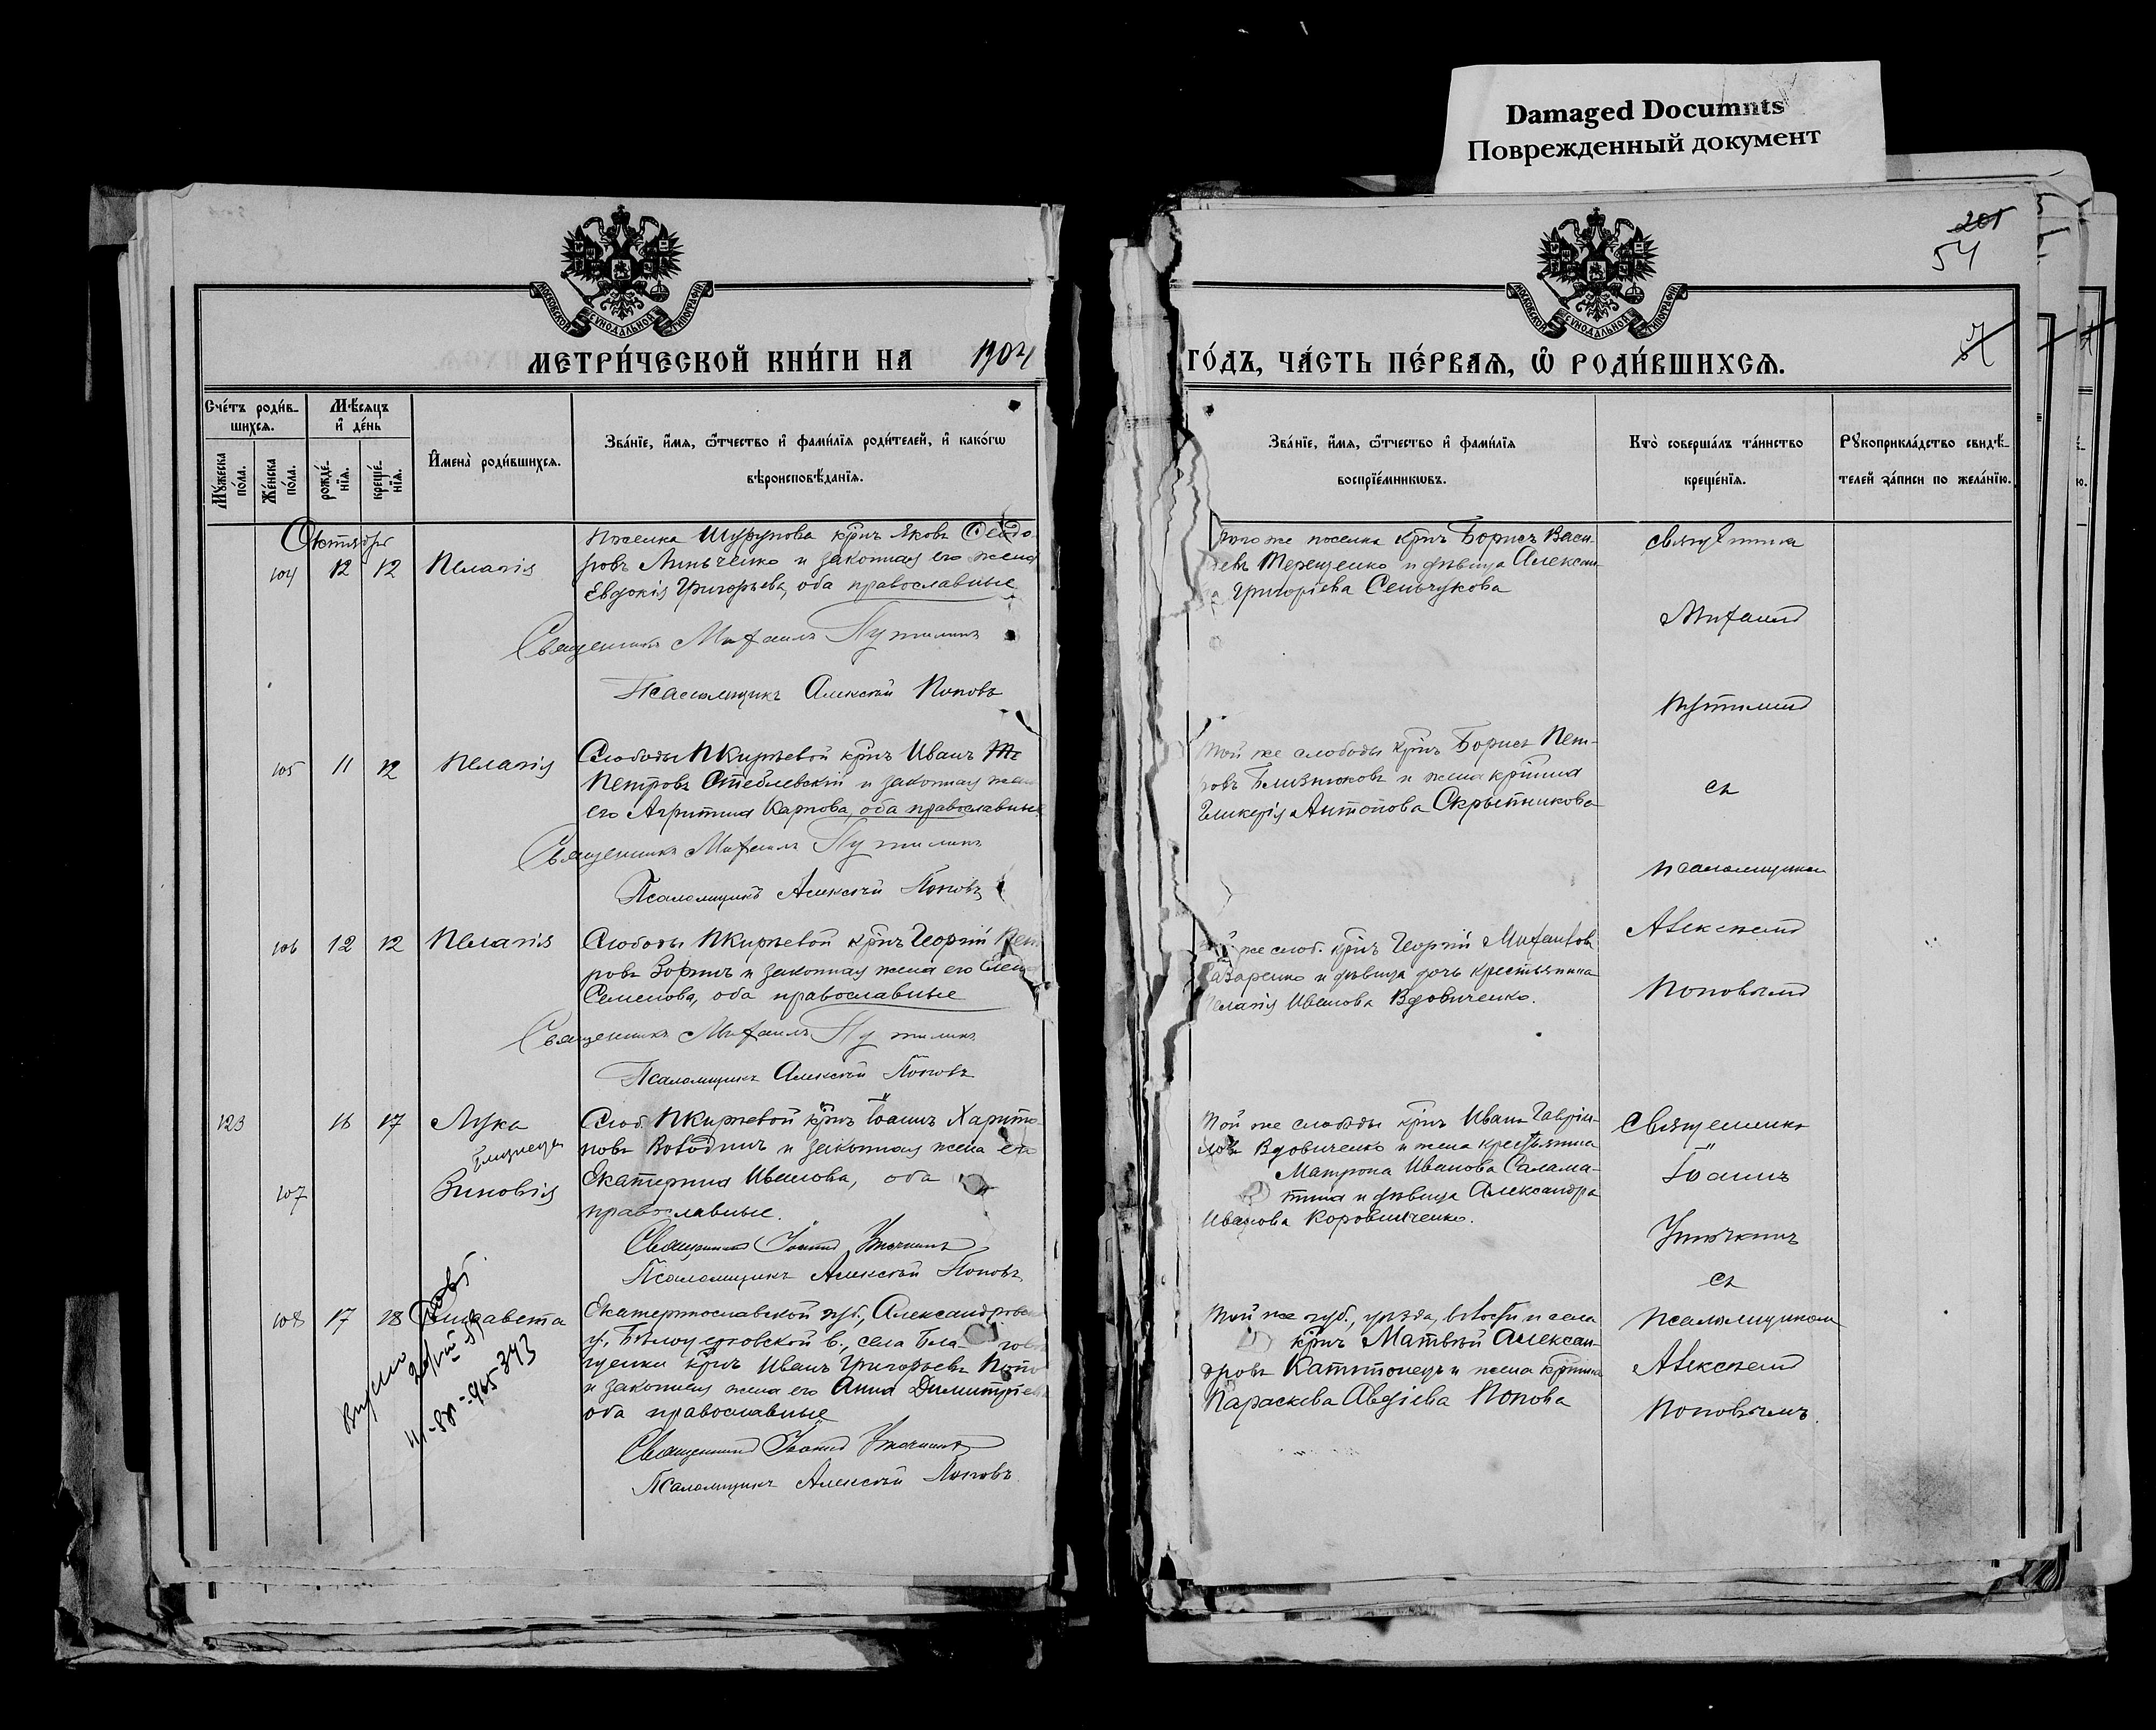 Damaged Documnts
Поврежденный документ
201
54
МОСКОВСКОЙ СѴНОДАЛЬНОЙ ТИПОГРАФІИ
МОСКОВСКОЙ СѴНОДАЛЬНОЙ ТИПОГРАФІИ
МЕТРИ́ЧЕСКОЙ КНИ́ГИ НА 1904
ГО́ДЪ, ЧА́СТЬ ПЕ́РВАѦ, Ѡ҆ РОДИ́ВШИХСѦ.
Сче́тъ роди́в-
шихсѧ.
Мѣ́сѧцъ
и҆ де́нь
Му́жеска
по́ла.
Же́нска
по́ла.
рожде́-
нїѧ.
креще́-
нїѧ.
И҆мена̀ роди́вшихсѧ.
Зва́нїе, и҆́мѧ, ѻ҆́тчество и҆ фами́лїѧ роди́телей, и҆ како́гѡ
вѣроисповѣ́данїѧ.
Зва́нїе, и҆́мѧ, ѻ҆́тчество и҆ фами́лїѧ
воспрїе́мникѡвъ.
Кто̀ соверша́лъ та́инство
креще́нїѧ.
Рꙋкоприкла́дство свидѣ́-
телей за́писи по жела́нїю.
Октябрь
104 12 12 Пелагія
Поселка Шурупова крнъ Яковъ Ѳеодо-
ровъ Линьченко и законная его жена
Евдокія Григорьева, оба православные
Священникъ Михаилъ Путилинъ
Псаломщикъ Алексѣй Поповъ
того же поселка крнъ Борисъ Васи-
евъ Терещенко и дѣвица Алексан-
Григоріева Сенчукова
священник
Михаил
Путилин
105 11 12 Пелагія
Слободы Шкирьевой крнъ Иванъ
Петровъ Стеблевскій и законная жена
его Агрипина Карпова, оба православные
Священникъ Михаилъ Путилинъ
Псаломщикъ Алексѣй Поповъ
той же слободы крнъ Борисъ Пет-
ровъ Близнюковъ и жена крнина
Гликерія Антонова Скрытникова
съ
псаломщиком
106 12 12 Пелагія
Слободы Шкирьевой крнъ Георгій Пет
ровъ Зоринъ и законная жена его Елена
Семенова, оба православные
Священникъ Михаилъ Путилинъ
Псаломщикъ Алексѣй Поповъ
же слоб. крнъ Георгій Михаилов
азаренко и дѣвица дочь крестьянина
Пелагія Иванова Вдовиченко.
Алексѣем
Поповым
123 16 17 Лука
близнецы
107 Зиновія
Слоб. Шкирьевой крнъ Іоаннъ Харито-
новъ Володинъ и законная жена его
Екатерина Иванова, оба
православные.
Священник Іоанн
Псаломщикъ Алексѣй Поповъ
той же слободы крнъ Иванъ Гавріи-
ловъ Вдовиченко и жена крестьянина
Матрона Иванова Салама-
тина и дѣвица Александра
Иванова Коровниченко.
Священник
Іоаннъ
съ
108 17 18 Елизавета
Екатеринославской губ., Александровска
у., Бѣлоцерковской в., села Бла- гов
щенки крнъ Иванъ Григорьевъ Попо
и законная жена его Анна Димитріева
оба православные
Священник Іоанн
Псаломщикъ Алексѣй Поповъ
той же губ., уѣзда, волости и села
крнъ Матвѣй Алексан-
дровъ и жена крнина
Параскева Авдіева Попова
псаломщиком
Алексѣем
Поповымъ.